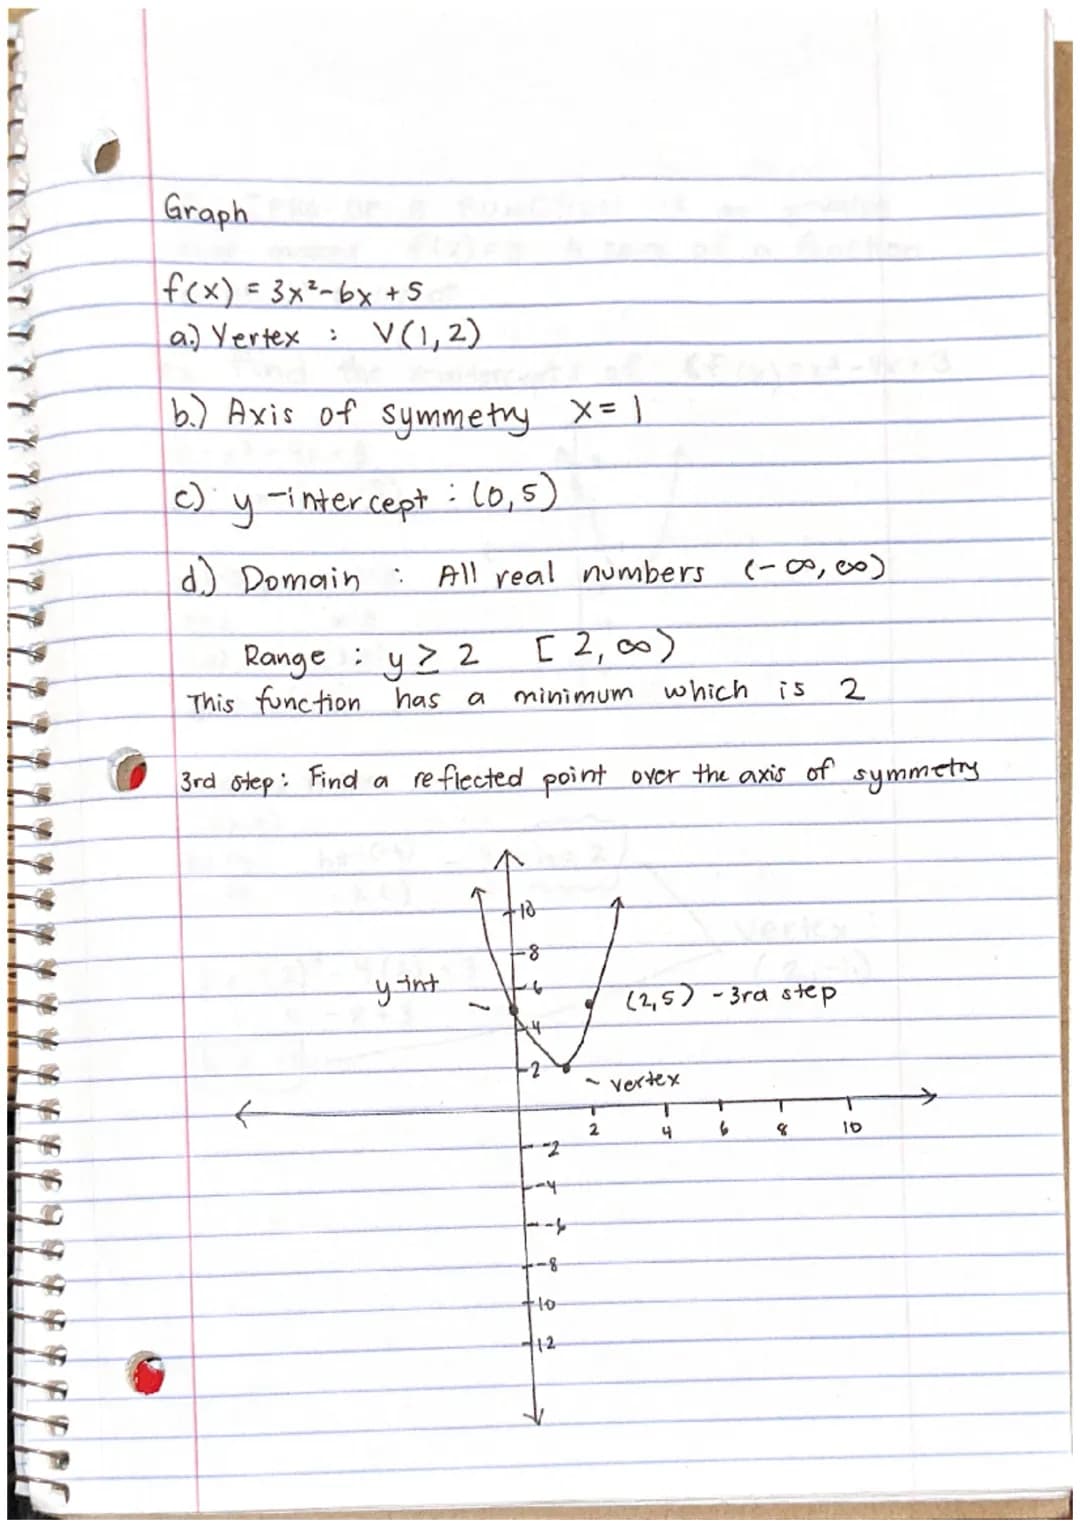 Graph
f(x) = 3x²-6x +5
a.) Vertex : V(1,2)
b.) Axis of symmetry x= 1
c) y-intercept : (0,5)
d.) Domain : All real numbers (-∞,∞)
Range : y ≥ 2 [2,∞)
This function has a minimum which is 2
3rd step: Find a reflected point over the axis of symmetry
10
8
6
y-int
(2,5) - 3rd step
4
2
- vertex
2 4 6 8 10
-2
-4
-6
-8
10
12